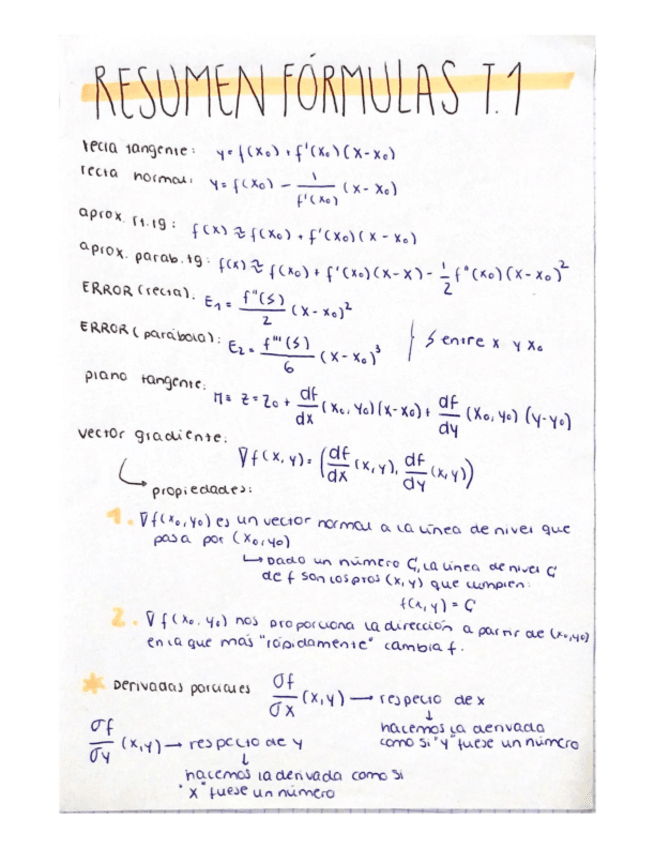 RESUMEN FÓRMULAS T.1
recta tangente: y = f(x₀) + f'(x₀)(x-x₀)
recta normal: y = f(x₀) - 1/f'(x₀) (x-x₀)
aprox. rt.tg: f(x) ≈ f(x₀) + f'(x₀)(x-x₀)
aprox. parab.tg: f(x) ≈ f(x₀) + f'(x₀)(x-x) - 1/2 f''(x₀)(x-x₀)²
ERROR (recta): E₁ = f''(S)/2 (x-x₀)²
ERROR (parábola): E₂ = f'''(S)/6 (x-x₀)³ } S entre x y x₀
plano tangente: π ≡ z = z₀ + df/dx (x₀, y₀)(x-x₀) + df/dy (x₀, y₀)(y-y₀)
vector gradiente:
∇f(x, y) = (df/dx (x,y), df/dy (x,y))
↳ propiedades:
1. ∇f(x₀, y₀) es un vector normal a la línea de nivel que
pasa por (x₀, y₀)
↳ Dado un número C, la línea de nivel C
de f son los ptos (x, y) que cumplen:
f(x, y) = C
2. ∇f(x₀, y₀) nos proporciona la dirección a partir de (x₀, y₀)
en la que más "rápidamente" cambia f.
* Derivadas parciales σf/σx (x, y) → respecto de x
↓
hacemos la derivada
como si "y" fuese un número
σf/σy (x, y) → respecto de y
↓
hacemos la derivada como si
"x" fuese un número